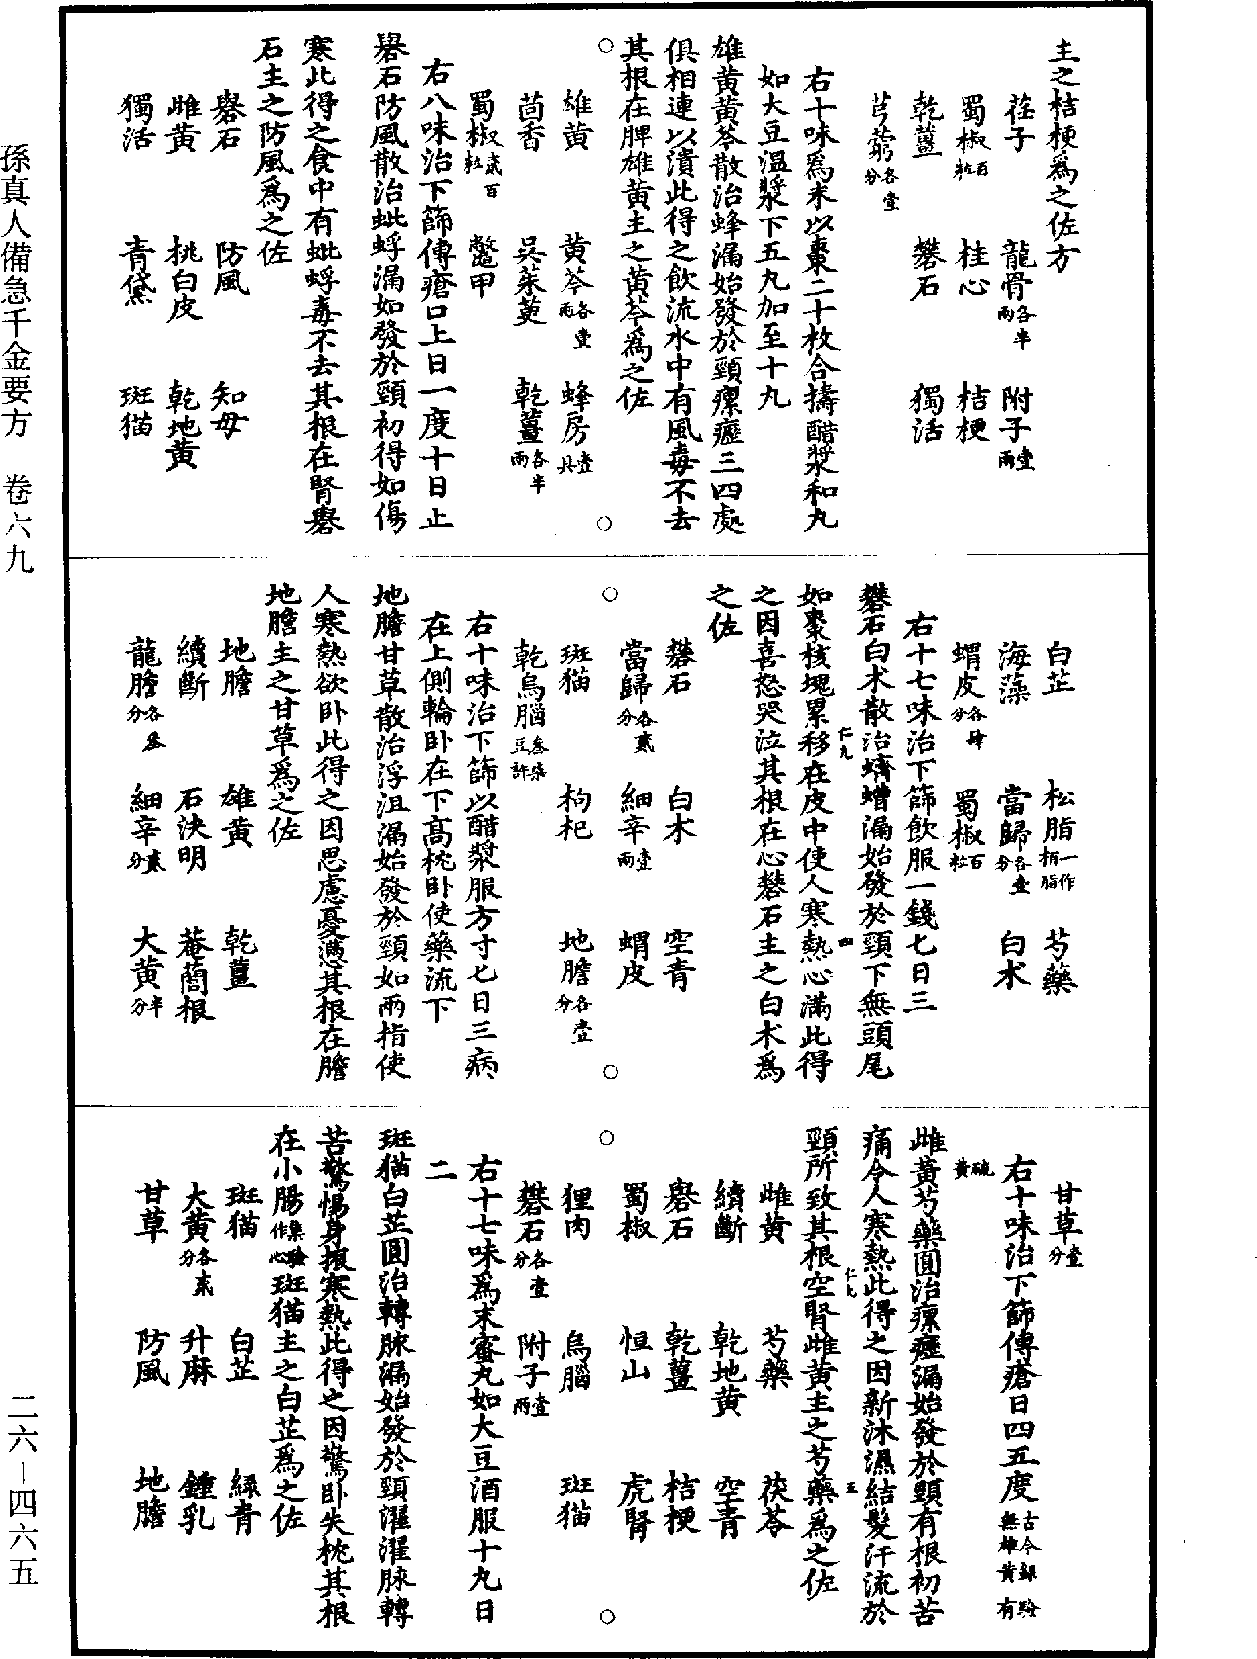 主之桔梗爲之佐方
荏子 龍骨各半兩 附子壹兩
蜀椒百粒 桂心 桔梗
乾薑 礬石 獨活
芎藭各壹分
右十味爲末以棗二十枚合擣醋漿和丸
如大豆溫漿下五丸加至十丸
雄黃黃芩散治蜂漏始發於頸瘰癧三四處
俱相連以潰此得之飲流水中有風毒不去
其根在脾雄黃主之黃芩爲之佐
雄黃 黃芩各壹兩 蜂房壹具
茴香 吳茱萸 乾薑各半兩
蜀椒貳百粒 鱉甲
右八味治下篩傅瘡口上日一度十日止
礜石防風散治蚍蜉漏如發於頸初得如傷
寒此得之食中有蚍蜉毒不去其根在腎礜
石主之防風爲之佐
礜石 防風 知母
雌黃 桃白皮 乾地黃
獨活 青黛 斑猫
白芷 松脂一作栯脂 芍藥
海藻 當歸各壹分 白朮
蝟皮各肆分 蜀椒百粒
右十七味治下篩飲服一錢匕日三
礬石白朮散治蠐螬漏始發於頸下無頭尾
如棗核塊累移在皮中使人寒熱心滿此得
之因喜怒哭泣其根在心礜石主之白朮爲
之佐
礜石 白朮 空青
當歸各貳分 細辛壹兩 蝟皮
斑猫 枸杞 地膽各壹分
乾烏腦叁柒豆許
右十味治下篩以醋漿服方寸匕日三病
在上側輪臥在下高枕臥使藥流下
地膽甘草散治浮沮漏始發於頸如兩指使
人寒熱欲臥此得之因思慮憂懣其根在膽
地膽主之甘草爲之佐
地膽 雄黃 乾薑
續斷 石決明 菴䕡根
龍膽各叁分 細辛貳分 大黃半分
甘草壹分
右十味治下篩傅瘡日四五度古今錄驗無雄黃有硫黃
雌黃芍藥圓治瘰癧漏始發於頸有根初苦
痛令人寒熱此得之因新沐濕結髮汗流於
頸所致其根空腎雌黃主之芍藥爲之佐
雌黃 芍藥 茯苓
續斷 乾地黃 空青
礜石 乾薑 桔梗
蜀椒 恒山 虎腎
狸肉 烏腦 斑猫
礬石各壹分 附子壹兩
右十七味爲末蜜丸如大豆酒服十丸日
二
斑猫白芷圓治轉脉漏始發於頸濯濯脉轉
苦驚惕身振寒熱此得之因驚臥失枕其根
在小腸集驗作心斑猫主之白芷爲之佐
斑猫 白芷 綠青
大黃各貳分 升麻 鍾乳
甘草 防風 地膽
孫真人備急千金要方 卷六九
二六—四六五